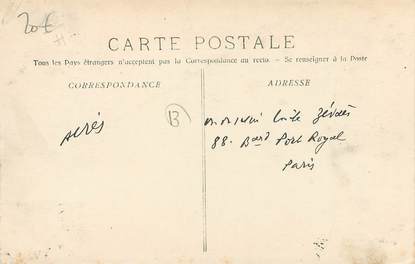 20€
CARTE POSTALE
Tous les Pays étrangers n'acceptent pas la Correspondance au recto. — Se renseigner à la Poste
CORRESPONDANCE
ADRESSE
13
88. Bard Port Royal
Paris